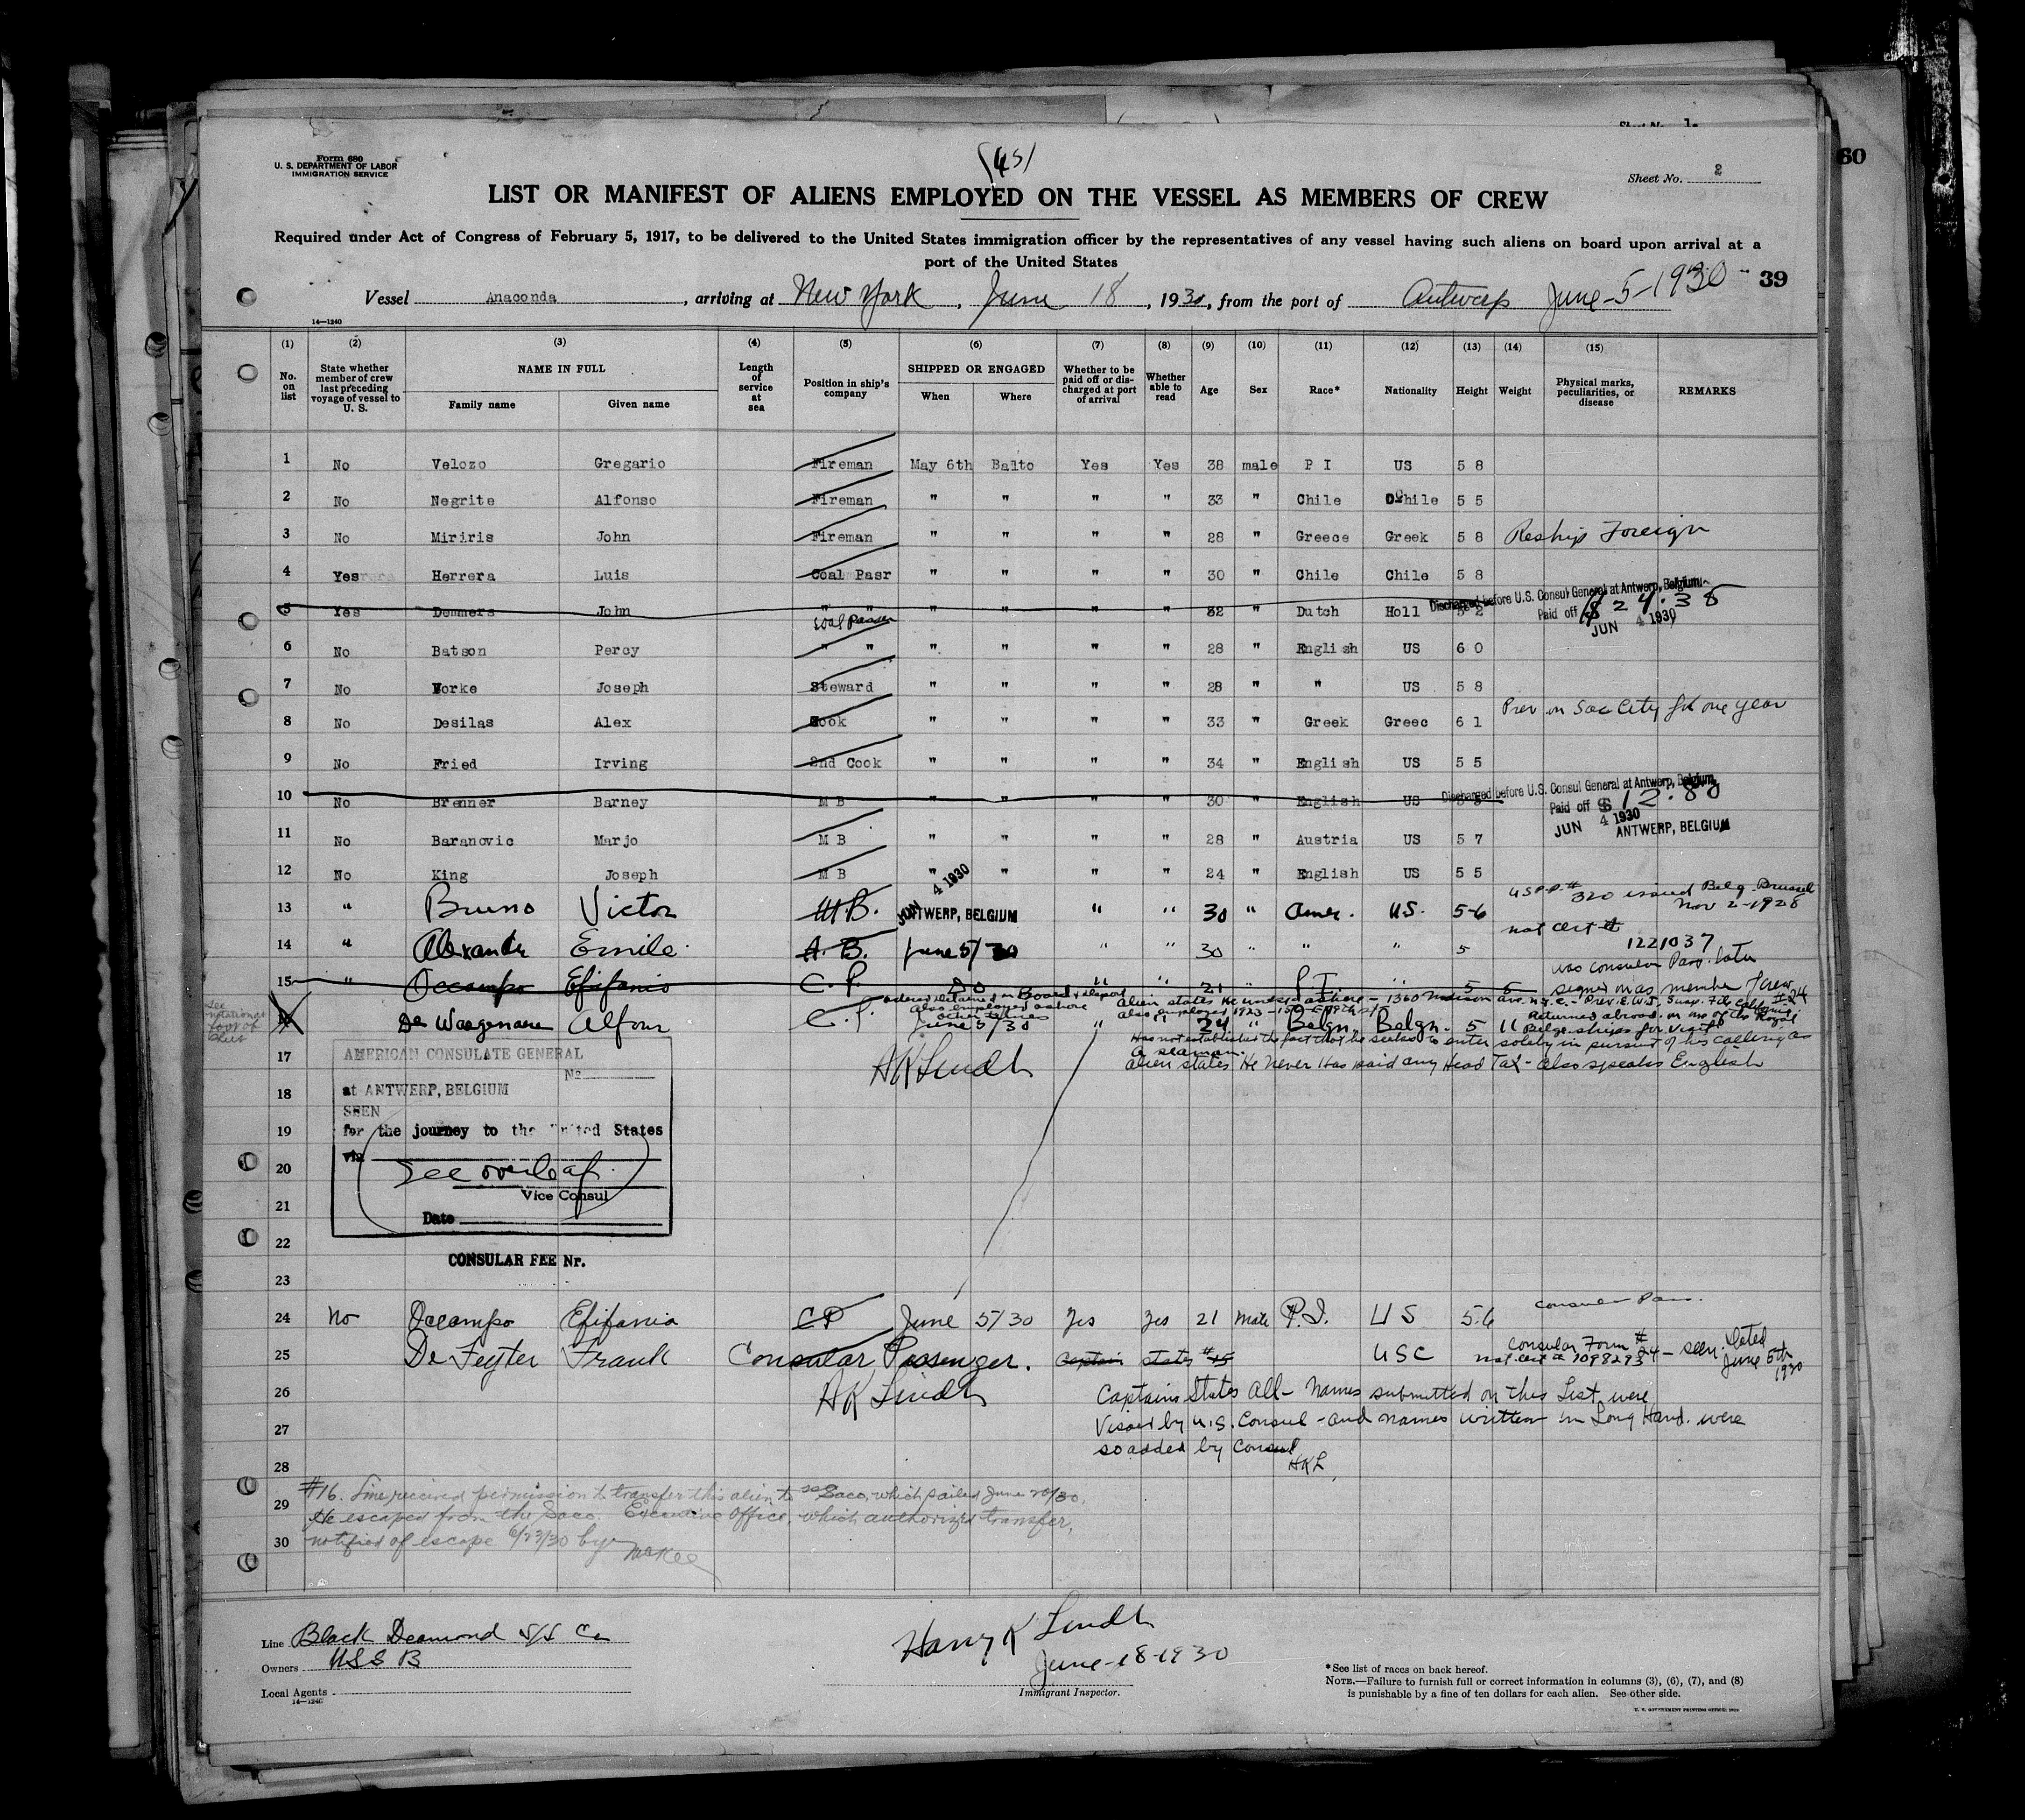 Sheet No. 1
60
Form 680
U. S. DEPARTMENT OF LABOR
IMMIGRATION SERVICE
(45)
Sheet No. 2
LIST OR MANIFEST OF ALIENS EMPLOYED ON THE VESSEL AS MEMBERS OF CREW
Required under Act of Congress of February 5, 1917, to be delivered to the United States immigration officer by the representatives of any vessel having such aliens on board upon arrival at a
port of the United States
39
Vessel Anaconda, arriving at New York, June 18, 1930, from the port of Antwerp June-5-1930
14—1240
(1) (2) (3) (4) (5) (6) (7) (8) (9) (10) (11) (12) (13) (14) (15)
No. on list State whether member of crew last preceding voyage of vessel to U. S. NAME IN FULL Family name Given name Length of service at sea Position in ship's company SHIPPED OR ENGAGED When Where Whether to be paid off or discharged at port of arrival Whether able to read Age Sex Race* Nationality Height Weight Physical marks, peculiarities, or disease REMARKS
1 No Velozo Gregario Fireman May 6th Balto Yes Yes 38 male P I US 5 8
2 No Negrite Alfonso Fireman " " " " 33 " Chile Chile 5 5
3 No Miriris John Fireman " " " " 28 " Greece Greek 5 8 Reship Foreign
4 Yes Herrera Luis Coal Pasr " " " " 30 " Chile Chile 5 8
5 Yes Demmers John " " " " " " 32 " Dutch Holl 5 2 Discharged before U.S. Consul General at Antwerp, Belgium.
Paid off $24.38
JUN 4 1930
Coal Passer
6 No Batson Percy " " " " " " 28 " English US 6 0
7 No Yorke Joseph Steward " " " " 28 " " US 5 8
8 No Desilas Alex Cook " " " " 33 " Greek Greec 6 1 Prev on Sac City for one year
9 No Fried Irving 2nd Cook " " " " 34 " English US 5 5
10 No Brenner Barney M B " " " " 30 " English US Discharged before U.S. Consul General at Antwerp, Belgium.
Paid off $12.80
JUN 4 1930
ANTWERP, BELGIUM
11 No Baranovic Marjo M B " " " " 28 " Austria US 5 7
12 No King Joseph M B " " " " 24 " English US 5 5
13 " Bruno Victor M.B. JUN 4 1930 ANTWERP, BELGIUM " " 30 " Amer. U.S. 5-6 USPP# 320 issued Belg. Brussel
Nov 2-1928
14 " Alexandr Emile A. B. June 5/30 " " 30 " " " 5 not cert # 1221037
was consular Pass. later
15 " Occampo Efifanio C. P. Do " " 21 " P.I. " 5 5 signed on as member of crew
See notation at foot of sheet
ordered detained on Board & deport
also employed ashore
Alien states He lives ashore - 1360 Madison ave. N.Y.C.
Returned abroad on one of the Royal
Belge. ships for visit
De Waegenaere Alfons C. P. June 5/30 " " 24 " Belgn. Belgn. 5 11
Has not established the fact that he seeks to enter solely in pursuit of his calling as
a seaman.
Alien states He never Has paid any Head Tax - also speaks English
H K Lindh
17
18
19
20
21
22
23
AMERICAN CONSULATE GENERAL
No
at ANTWERP, BELGIUM
SEEN
for the journey to the United States
via
See overleaf
Vice Consul
Date
CONSULAR FEE Nr.
24 No Occampo Efifania CP June 5/30 Yes Yes 21 Male P.I. US 5.6 Consular Pass.
25 De Feyter Frank Consular Passenger. Captain states #15 USC Consular Form # 24 - seen. Dated
June 5th 1930
not cert # 1098293
26 H K Lindh Captain States All- Names submitted on this List were
27 Visaed by U.S. Consul - and names written in Long Hand. were
28 so added by Consul
HKL
29
30
#16. Line received permission to transfer this alien to SS Saco, which sailed June 20/30.
He escaped from the Saco. Executive Office, which authorized transfer,
notified of escape 6/23/30 by McKee
Line Black Deamond S/S Co
Owners USS B
Local Agents
14—1240
Harry K Lindh
June-18-1930
Immigrant Inspector.
*See list of races on back hereof.
NOTE.—Failure to furnish full or correct information in columns (3), (6), (7), and (8)
is punishable by a fine of ten dollars for each alien. See other side.
U. S. GOVERNMENT PRINTING OFFICE: 1929